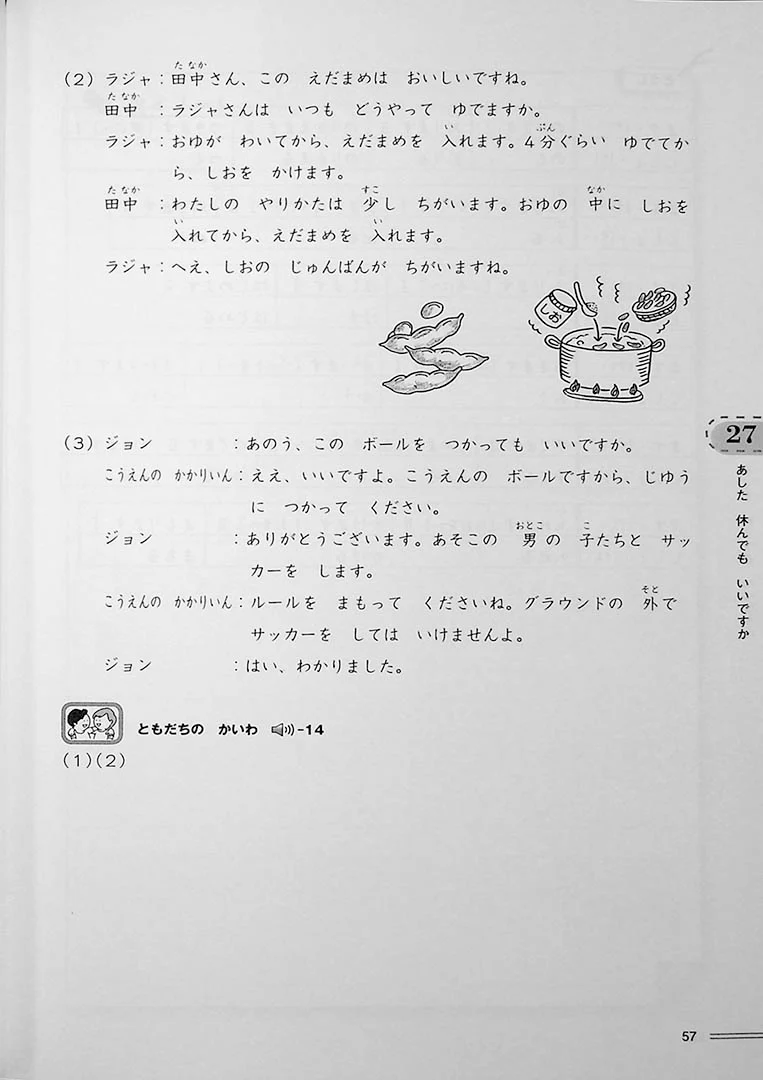 (2) ラジャ：田中さん、この えだまめは おいしいですね。
田中 ：ラジャさんは いつも どうやって ゆでますか。
ラジャ：おゆが わいてから、えだまめを 入れます。4分ぐらい ゆでてか
ら、しおを かけます。
田中 ：わたしの やりかたは 少し ちがいます。おゆの 中に しおを
入れてから、えだまめを 入れます。
ラジャ：へえ、しおの じゅんばんが ちがいますね。
しお
(3) ジョン ：あのう、この ボールを つかっても いいですか。
こうえんの かかりいん：ええ、いいですよ。こうえんの ボールですから、じゆう
に つかって ください。
ジョン ：ありがとうございます。あそこの 男の 子たちと サッ
カーを します。
こうえんの かかりいん：ルールを まもって くださいね。グラウンドの 外で
サッカーを しては いけませんよ。
ジョン ：はい、わかりました。
ともだちの かいわ -14
(1)(2)
27
あした 休んでも いいですか
57